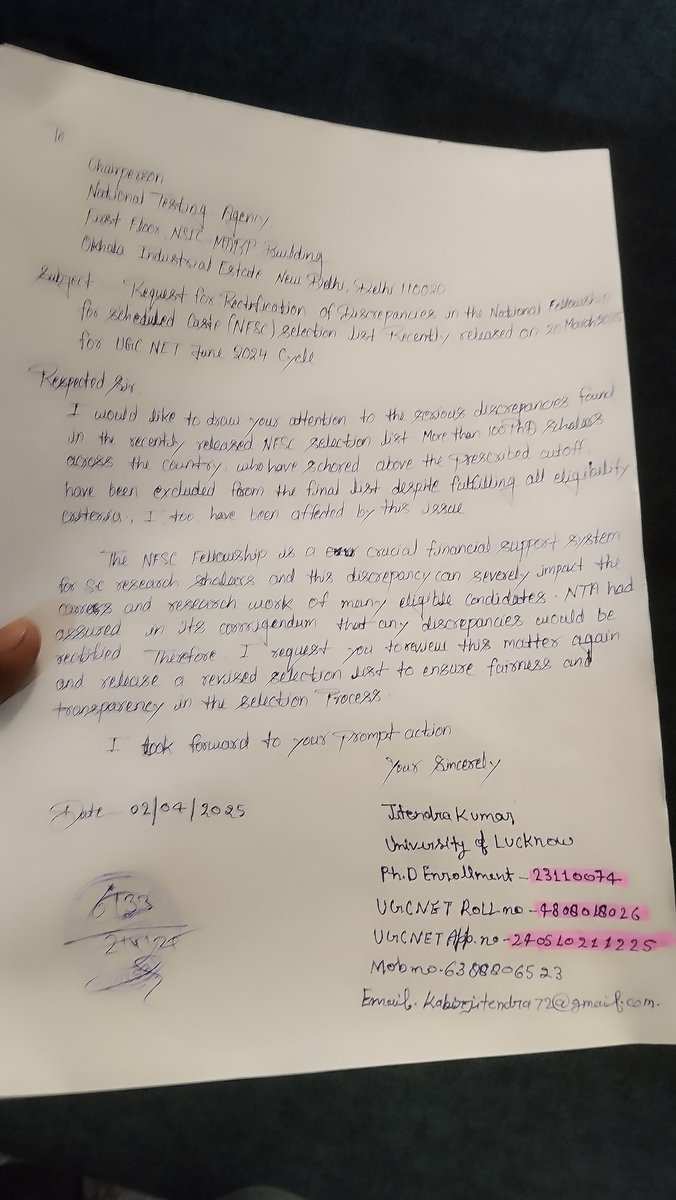 To
Chairperson
National Testing Agency
First Floor, NSIC MDBP Building
Okhala Industrial Estate, New Delhi, Delhi 110020
Subject - Request for Rectification of Discrepancies in the National Fellowship
for scheduled Caste (NFSC) selection list Recently released on 20 March 2025
for UGC NET June 2024 Cycle
Respected Sir,
I would like to draw your attention to the serious discrepancies found
in the recently released NFSC selection list More than 100 PhD scholars
across the country, who have schored above the prescribed cutoff,
have been excluded from the final list despite fulfilling all eligibility
criteria, I too, have been affected by this issue
The NFSC Fellowship is a crucial financial support system
for SC research scholars and this discrepancy can severely impact the
careers and research work of many eligible candidates. NTA had
assured in its corrigendum that any discrepancies would be
rectified Therefore, I request you to review this matter again
and release a revised selection list to ensure fairness and
transparency in the selection Process.
I look forward to your Prompt action
Your Sincerely
Date - 02/04/2025
Jitendra Kumar
University of Lucknow
Ph.D Enrollment - 23110074
UGC NET Roll no - 4808018026
UGC NET App. no - 240510211225
Mob no. 6388806523
Email. Kabirjitendra72@gmail.com.
6733